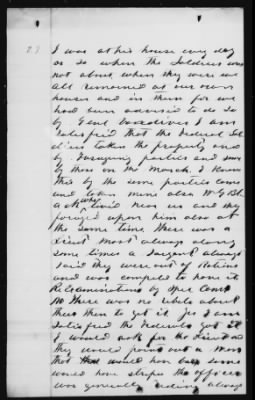 23 I was at his house every day
or so when the Soldiers was
not about when they were we
all remained at our own
houses and in them for we
had been advised to do so
by Genl I am
satisfied that the Federal Sol
diers taken the property one
by Foraging parties and som
by them on the March. I know
this by the same parties came
and taken mine also Mr
who lived near us and they
foraged upon him also at
the same time. there was a
Lieut most always along
some times a Sargent always
said they were out of Rations
and was compeled to have it
Reexamination by Spec Com
No there was no rebels about
there then to get it yes I am
Satisfied the Federals got it
I would ask for the Lieut and
they would point out a man
that would have some
would have stripes the officer
was generally riding always